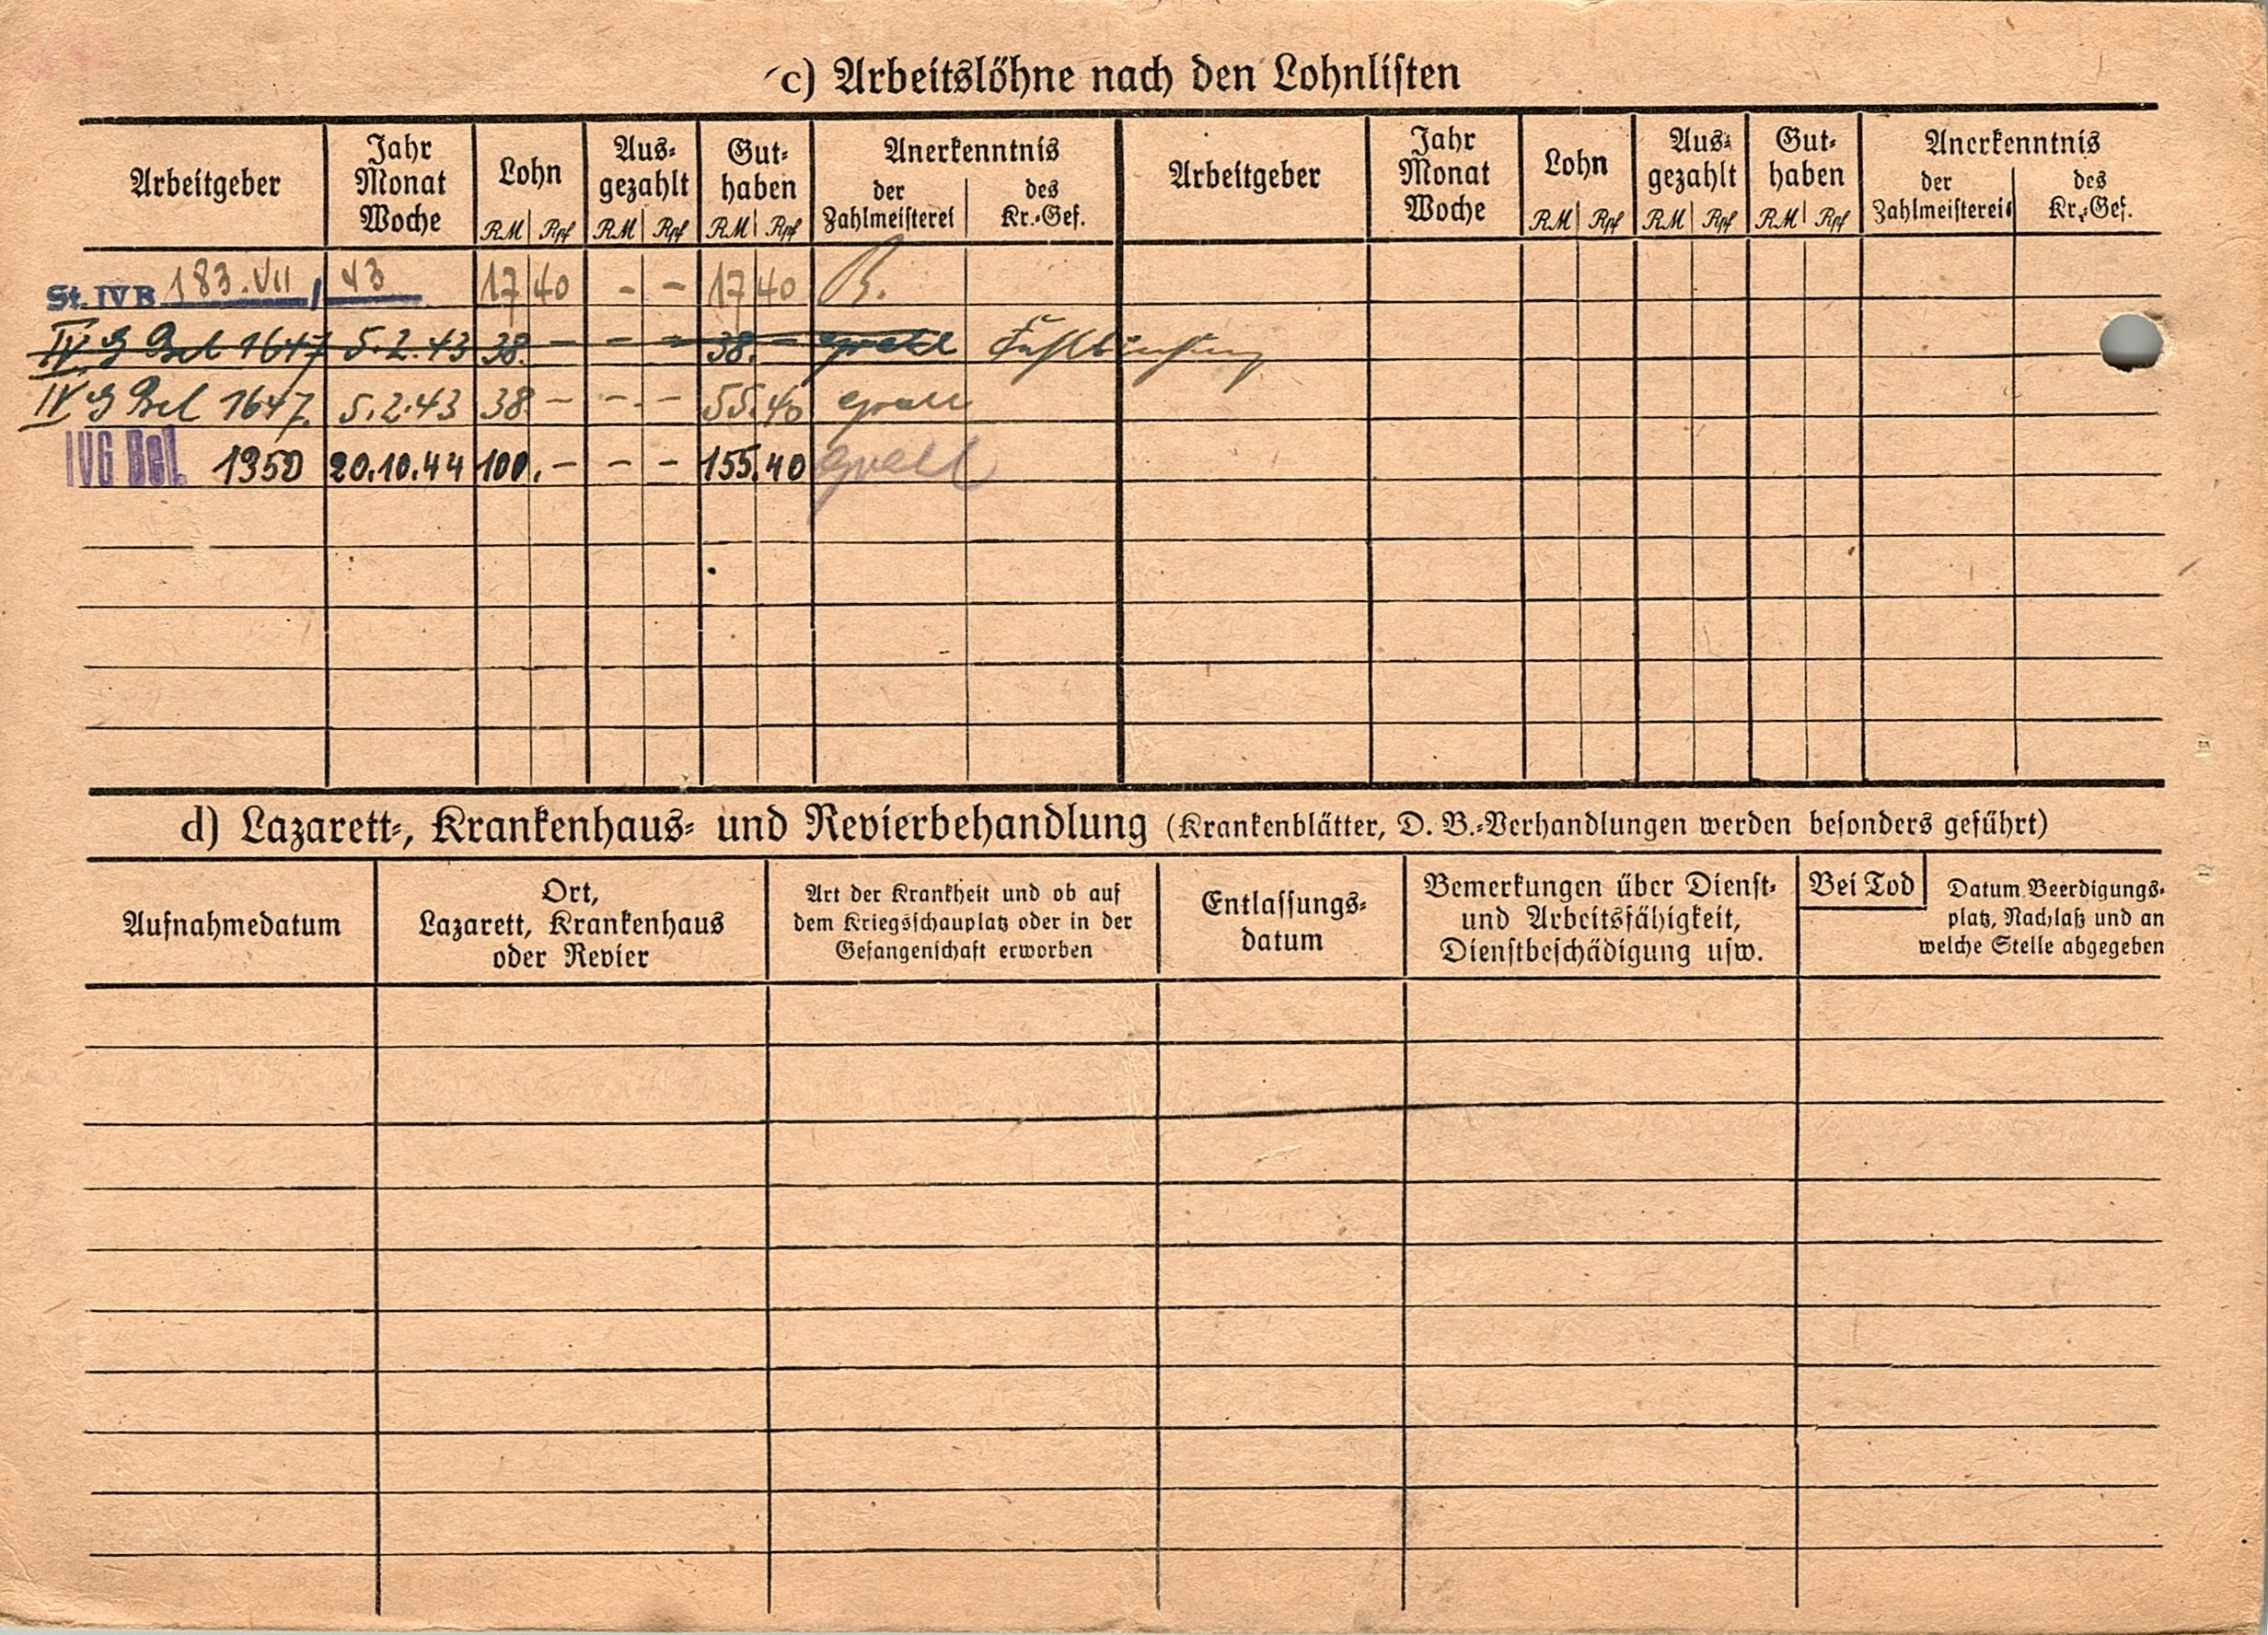 c) Arbeitslöhne nach den Lohnlisten
Arbeitgeber Jahr Monat Woche Lohn RM Rpf Aus-gezahlt RM Rpf Gut-haben RM Rpf Anerkenntnis der Zahlmeisterei des Kr.-Gef. Arbeitgeber Jahr Monat Woche Lohn RM Rpf Aus-gezahlt RM Rpf Gut-haben RM Rpf Anerkenntnis der Zahlmeisterei des Kr.-Gef.
St. IV B 183.VII / 43 17 40 - - 17 40 B.
IV G Bel 1647 5.2.43 38. - - - 38. - Fehlbuchung
IV G Bel 1647. 5.2.43 38. - - - 55.40
IVG Bel. 1950 20.10.44 100. - - - 155.40
d) Lazarett-, Krankenhaus- und Revierbehandlung (Krankenblätter, D. B.-Verhandlungen werden besonders geführt)
Aufnahmedatum
Ort,
Lazarett, Krankenhaus
oder Revier
Art der Krankheit und ob auf
dem Kriegsschauplatz oder in der
Gefangenschaft erworben
Entlassungs-
datum
Bemerkungen über Dienst-
und Arbeitsfähigkeit,
Dienstbeschädigung usw.
Bei Tod
Datum Beerdigungs-
platz, Nachlaß und an
welche Stelle abgegeben